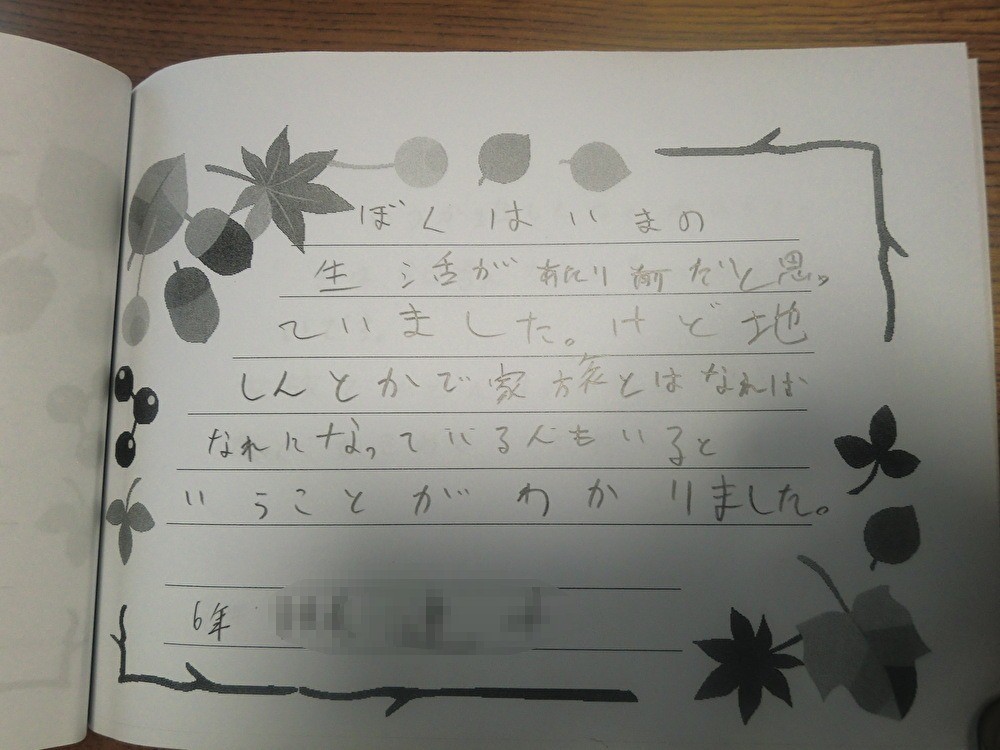 ぼくはいまの
生活があたり前だと思っ
ていました。けど地
しんとかで家族とはなれば
なれになっている人もいると
いうことがわかりました。
6年